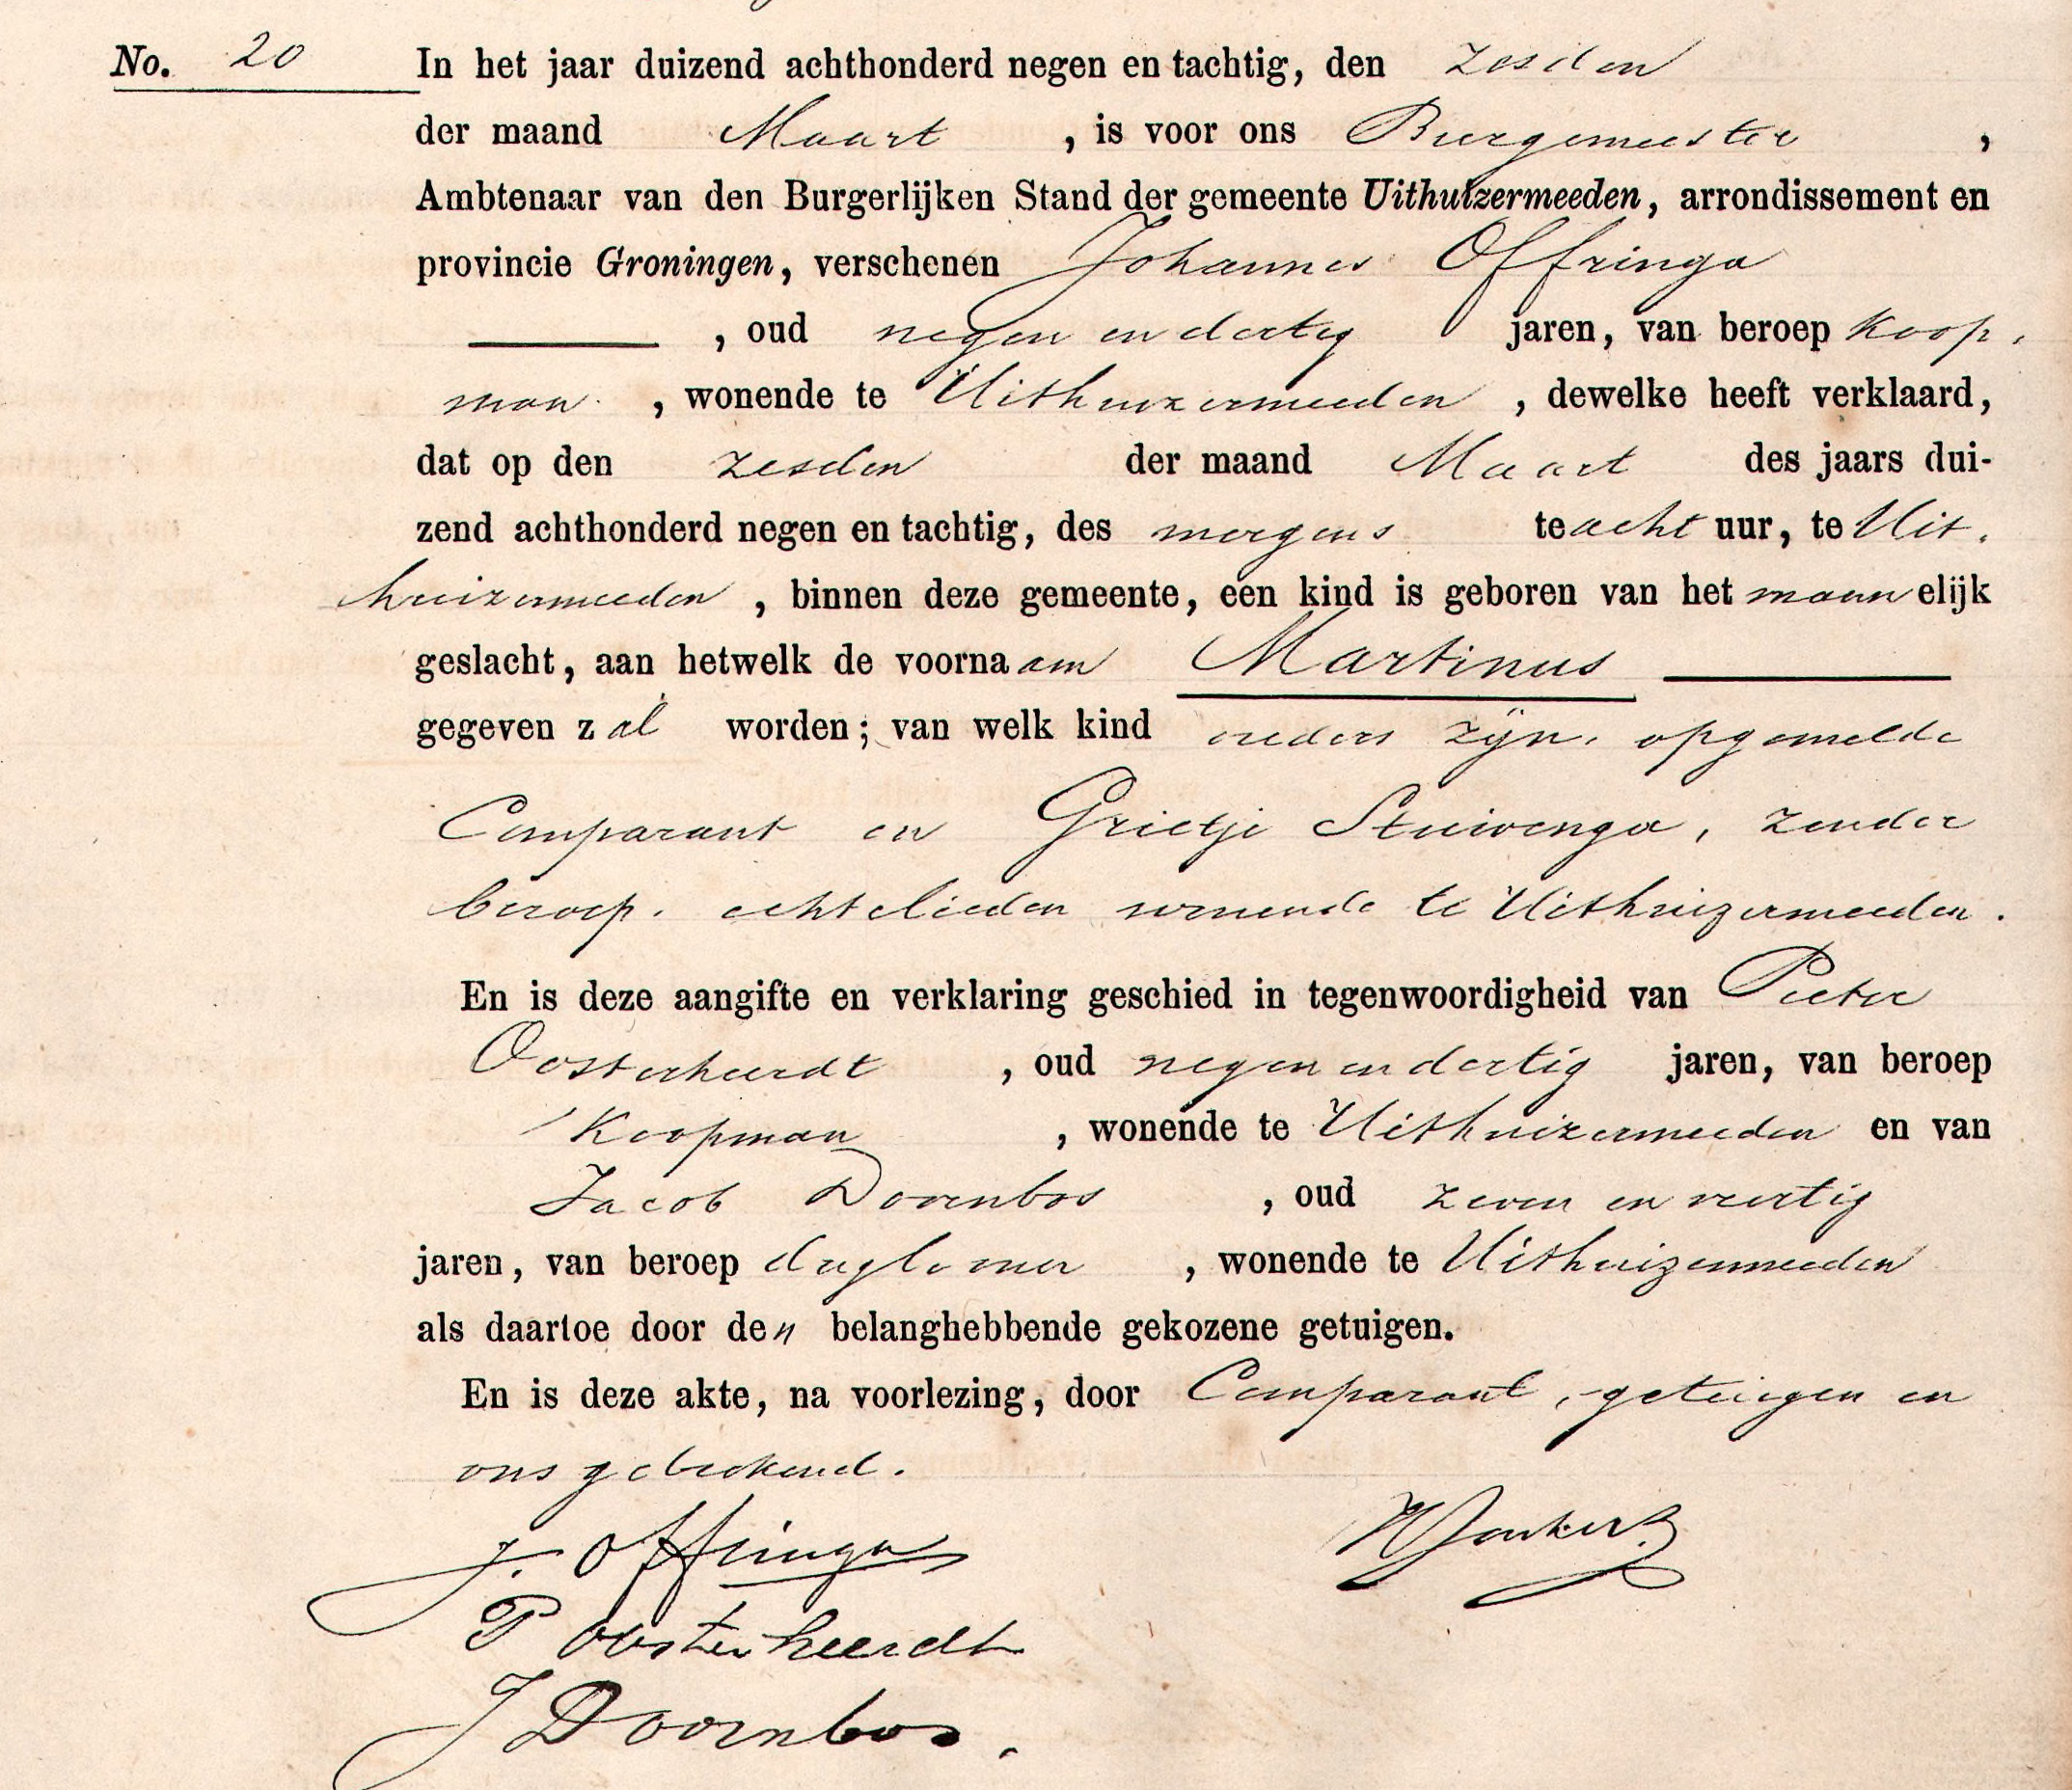 No. 20 In het jaar duizend achthonderd negen en tachtig, den zesden
der maand Maart , is voor ons Burgemeester ,
Ambtenaar van den Burgerlijken Stand der gemeente Uithuizermeeden, arrondissement en
provincie Groningen, verschenen Johannes Offringa
, oud negen en dertig jaren, van beroep Koop,
man , wonende te Uithuizermeeden , dewelke heeft verklaard,
dat op den zesden der maand Maart des jaars dui-
zend achthonderd negen en tachtig, des morgens te acht uur, te Uit,
huizermeeden , binnen deze gemeente, een kind is geboren van het mannelijk
geslacht, aan hetwelk de voornaam Martinus
gegeven zal worden; van welk kind ouders zijn, opgemelde
Comparant en Grietje Stuivenga, zonder
beroep, echtelieden wonende te Uithuizermeeden.
En is deze aangifte en verklaring geschied in tegenwoordigheid van Pieter
Oosterheerdt , oud negen en dertig jaren, van beroep
Koopman , wonende te Uithuizermeeden en van
Jacob Doornbos , oud zeven en veertig
jaren, van beroep daglooner , wonende te Uithuizermeeden
als daartoe door den belanghebbende gekozene getuigen.
En is deze akte, na voorlezing, door Comparant, getuigen en
ons geteekend.
J. Offringa
P Oosterheerdt
J Doornbos.